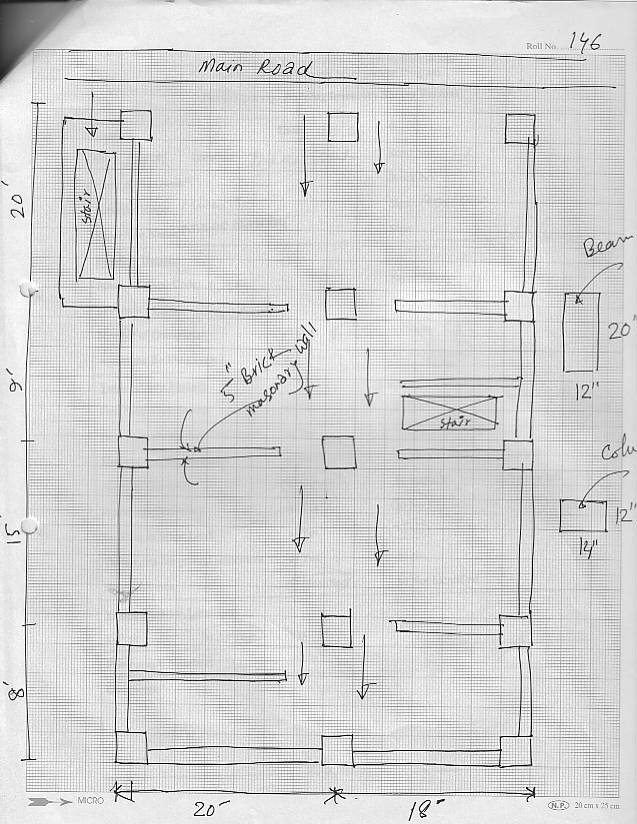 Roll No. 146
Main Road
20'
Stair
Beam
20"
12"
5" Brick
masonary wall
9'
Stair
12"
14"
15'
8'
MICRO
20'
18'
N.P. 20 cm x 25 cm